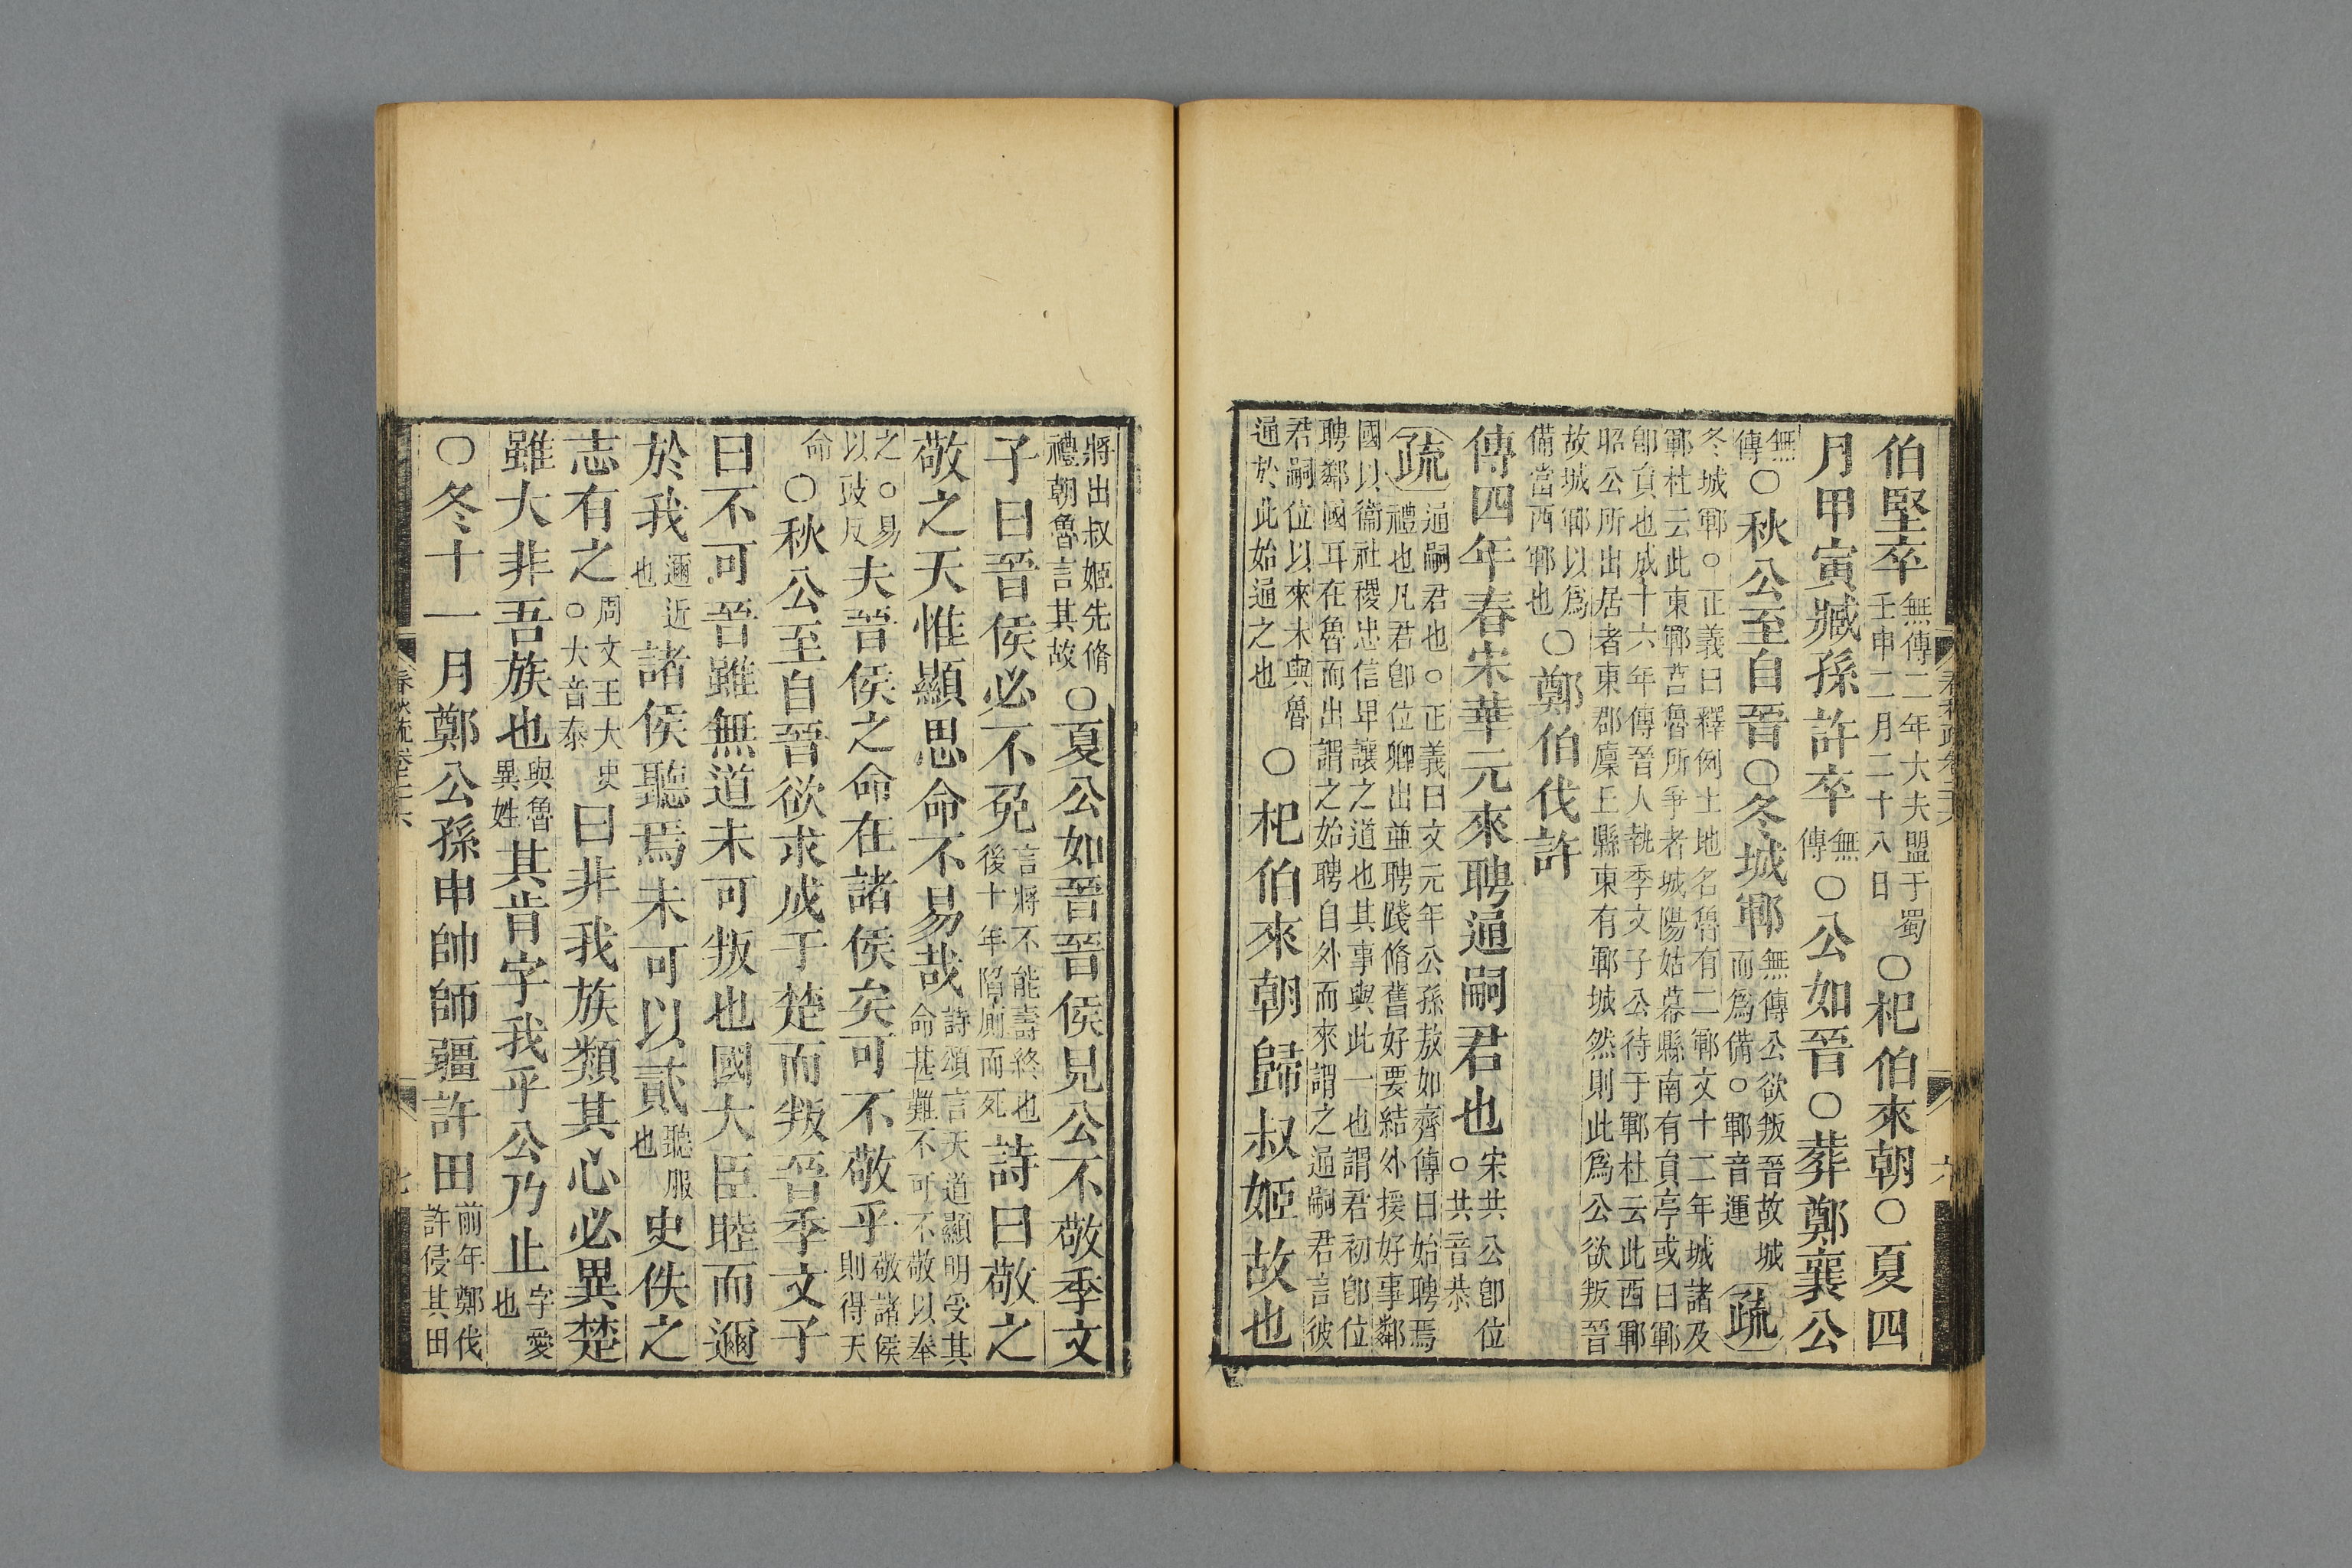 伯堅卒無傳二年大夫盟于蜀壬申二月二十八日○杞伯來朝○夏四
月甲寅臧孫許卒無傳○公如晉○葬鄭襄公
無傳○秋公至自晉○冬城鄆無傳公欲叛晉故城而爲備○鄆音運疏
冬城鄆○正義曰釋例土地名魯有二鄆文十二年城諸及
鄆杜云此東鄆莒魯所爭者城陽姑幕縣南有員亭或曰鄆
卽員也成十六年傳晉人執季文子公待于鄆杜云此西鄆
昭公所出居者東郡廩丘縣東有鄆城然則此爲公欲叛晉
故城鄆以爲備當西鄆也○鄭伯伐許
傳四年春宋華元來聘通嗣君也宋共公卽位○共音恭
疏通嗣君也○正義曰文元年公孫敖如齊傳曰始聘焉
禮也凡君卽位卿出並聘踐脩舊好要結外援好事鄰
國以衞社稷忠信卑讓之道也其事與此一也謂君初卽位
聘鄰國耳在魯而出謂之始聘自外而來謂之通嗣君言彼
君嗣位以來未與魯通於此始通之也○杞伯來朝歸叔姬故也
將出叔姬先脩禮朝魯言其故○夏公如晉晉侯見公不敬季文
子曰晉侯必不免言將不能壽終也後十年陷廁而死詩曰敬之
敬之天惟顯思命不易哉詩頌言天道顯明受其命甚難不可不敬以奉
之○易以豉反夫晉侯之命在諸侯矣可不敬乎敬諸侯則得天
命○秋公至自晉欲求成于楚而叛晉季文子
曰不可晉雖無道未可叛也國大臣睦而邇
於我邇近也諸侯聽焉未可以貳聽服也史佚之
志有之周文王大史○大音泰曰非我族類其心必異楚
雖大非吾族也與魯異姓其肯字我乎公乃止字愛也
○冬十一月鄭公孫申帥師疆許田前年鄭伐許侵其田
春秋疏卷二十六 七